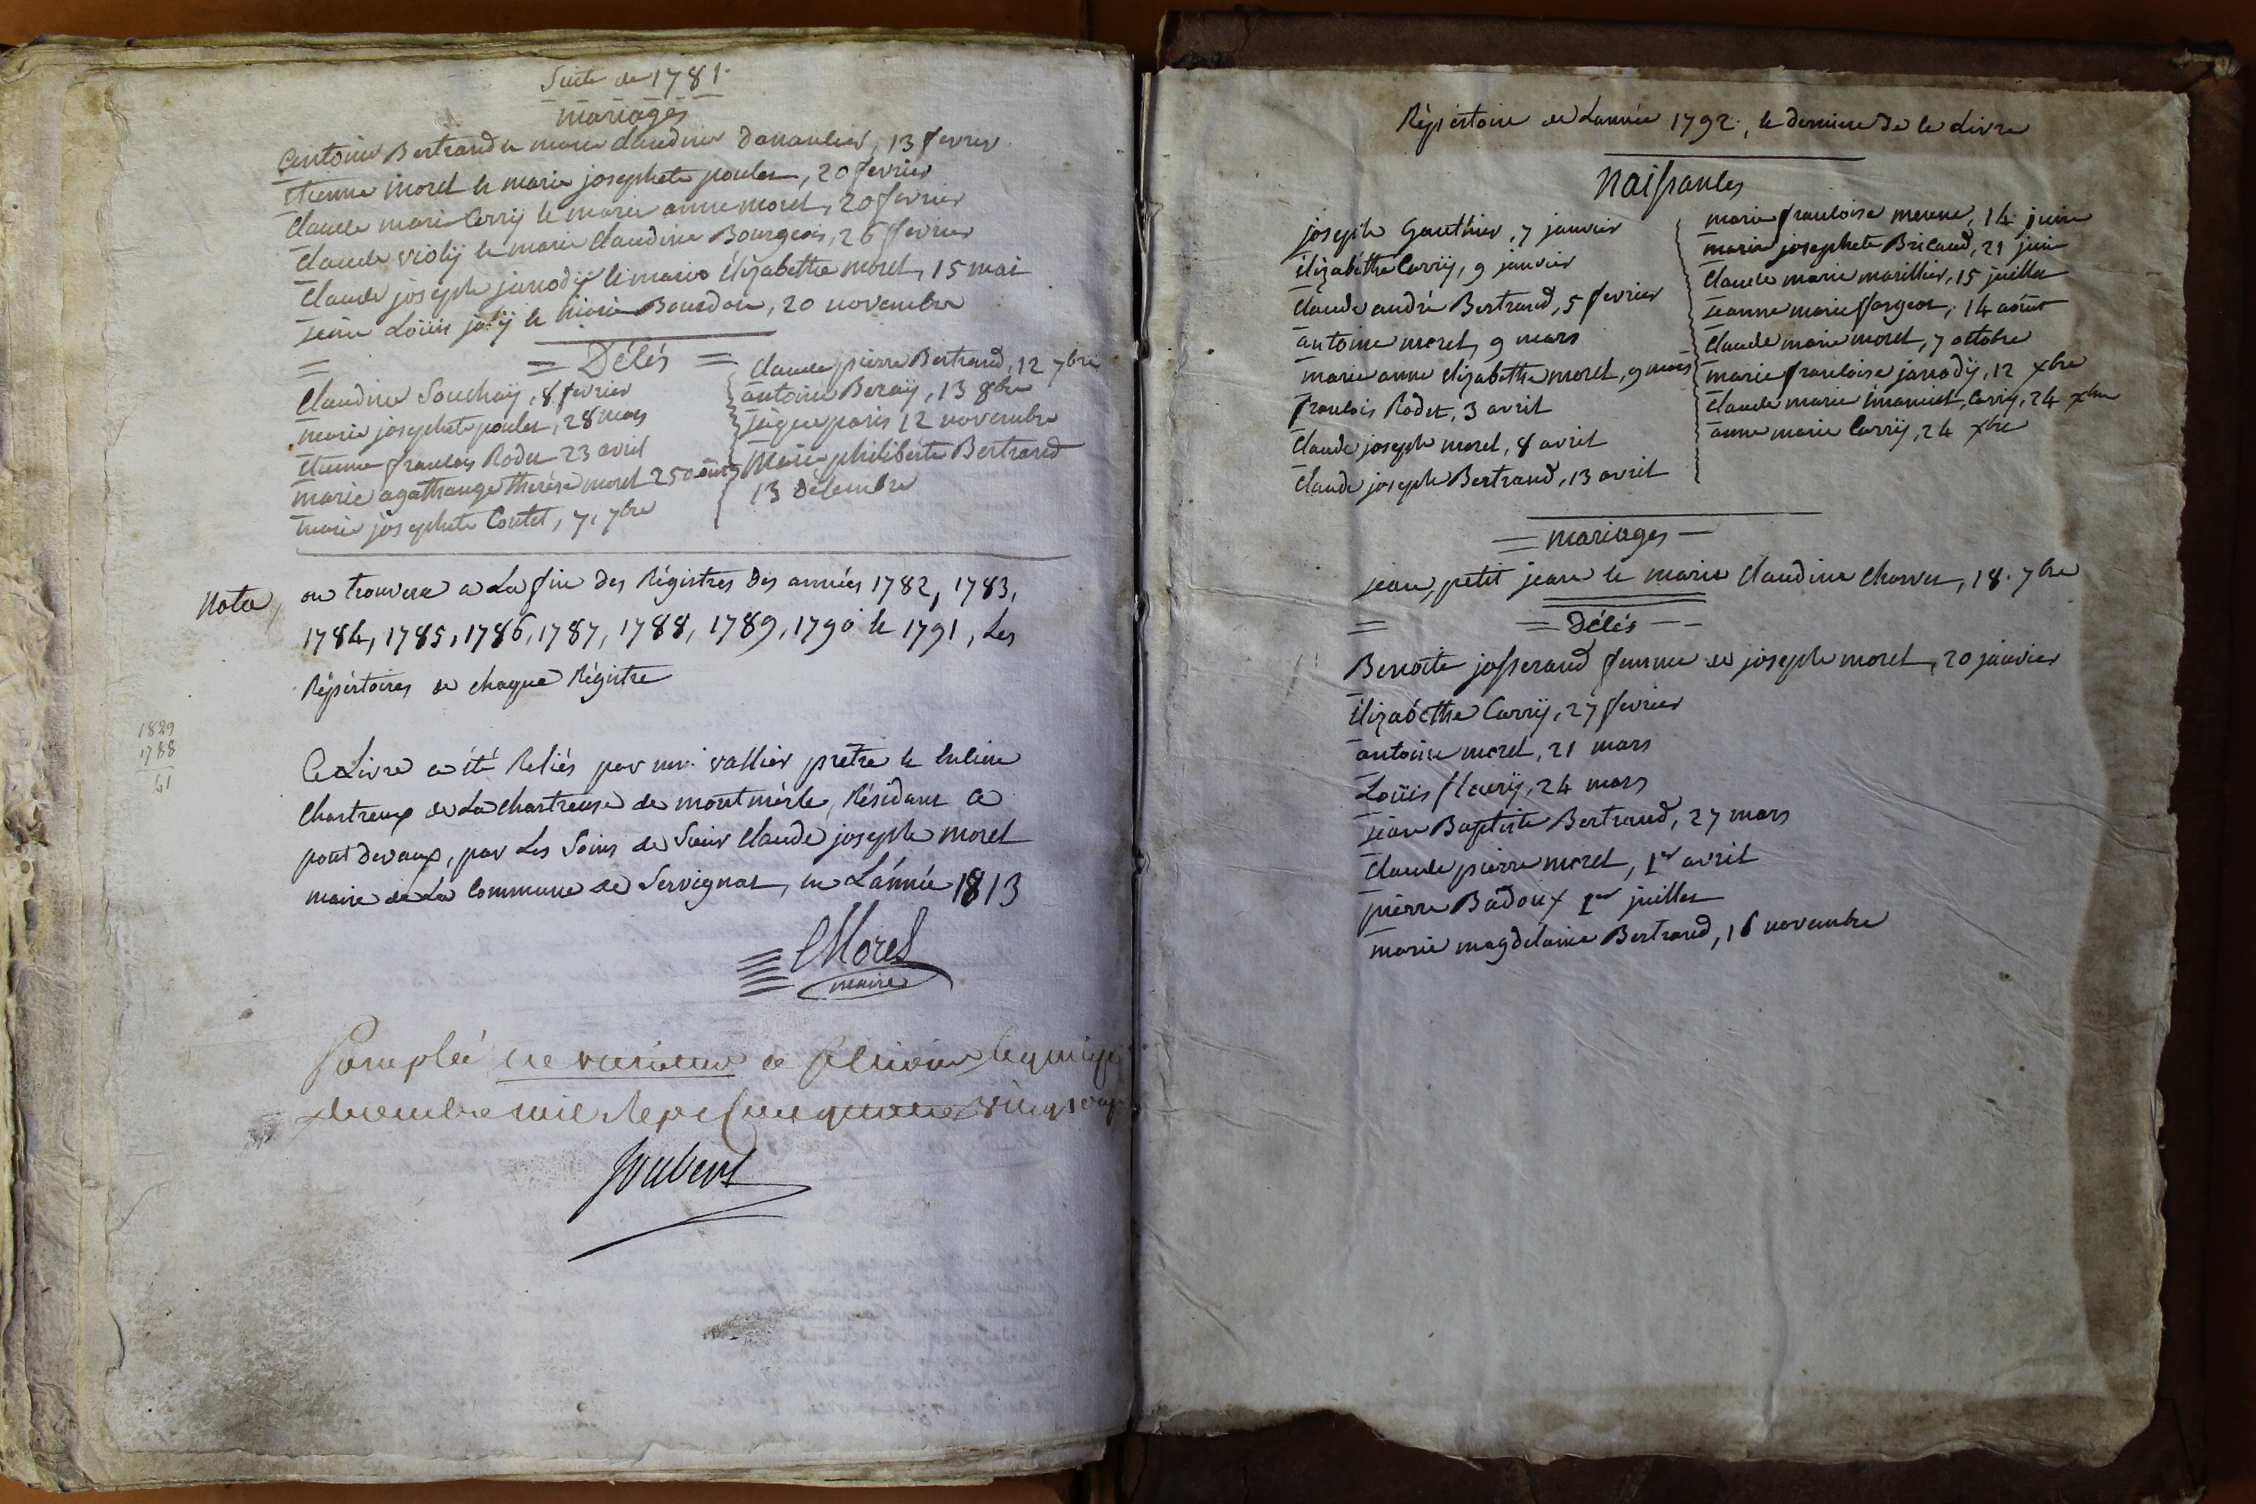 Suite de 1781.
mariages
antoine Bertrand le marie claudine Danantier, 13 fevrier
Etienne morel le marie josephete poulet, 20 fevrier
Claude marie Carrÿ le marie anne morel, 20 fevrier
Claude violÿ le marie Claudine Bourgeois, 26 fevrier
Claude joseph janodÿ le marie élizabethe morel, 15 mai
jean Loüis jolÿ le marie Bourdon, 20 novembre
= Décés =
Claudine Souchaÿ, 8 fevrier
marie josephete poulet, 28 mars
Etienne francois Rodet 23 avril
marie agathange therése morel 25 aoûst
marie josephete Contet, 7, 7bre
Claude pierre Bertrand, 12 7bre
antoine Beraÿ, 13 8bre
paris 12 novembre
Marie philiberte Bertrand
13 Décembre
Nota, on trouvera a La fin des Régistres des années 1782, 1783,
1784, 1785, 1786, 1787, 1788, 1789, 1790 le 1791, Les
Répértoires de chaque Régistre
1829
1788
41
Ce Livre a été Reliés par mr. vallier prêtre le
Chartreux de La chartreuse de montmérle, Résidant a
pont devaux, par Les Soins de Sieur Claude joseph morel
maire de La Commune de Servignat, en L'année 1813
CMorel
maire
Paraphé ne varietur
decembre mil sept cent quatre vingt
Joubert
Répértoire de Lannée 1792, le dernier de ce Livre
Naissances
joseph Gauthier, 7 janvier
élizabéthe Carrÿ, 9 janvier
Claude andré Bertrand, 5 fevrier
antoine morel, 9 mars
marie anne elizabethe morel, 9 mars
francois Rodet, 3 avril
Claude joseph morel, 8 avril
Claude joseph Bertrand, 13 avril
marie francoise menne, 14 juin
marie josephete Bricaud, 21 juin
Claude marie marillier, 15 juillet
jeanne marie fargeot, 14 aoust
Claude marie morel, 7 octobre
marie francoise janodÿ, 12 xbre
Claude marie imanuel, Carrÿ, 24 xbre
anne marie Carrÿ, 24 xbre
= mariages =
jean, petit jean le marie Claudine Charvet, 18. 7bre
= Décés =
Benoite josserand femme de joseph morel, 20 janvier
Elizabéthe Carrÿ, 27 fevrier
antoine morel, 21 mars
Loüis fleurÿ, 24 mars
jean Baptiste Bertrand, 27 mars
Claude pierre morel, 1er avril
pierre Badoux 1er juillet
marie magdelaine Bertrand, 16 novembre